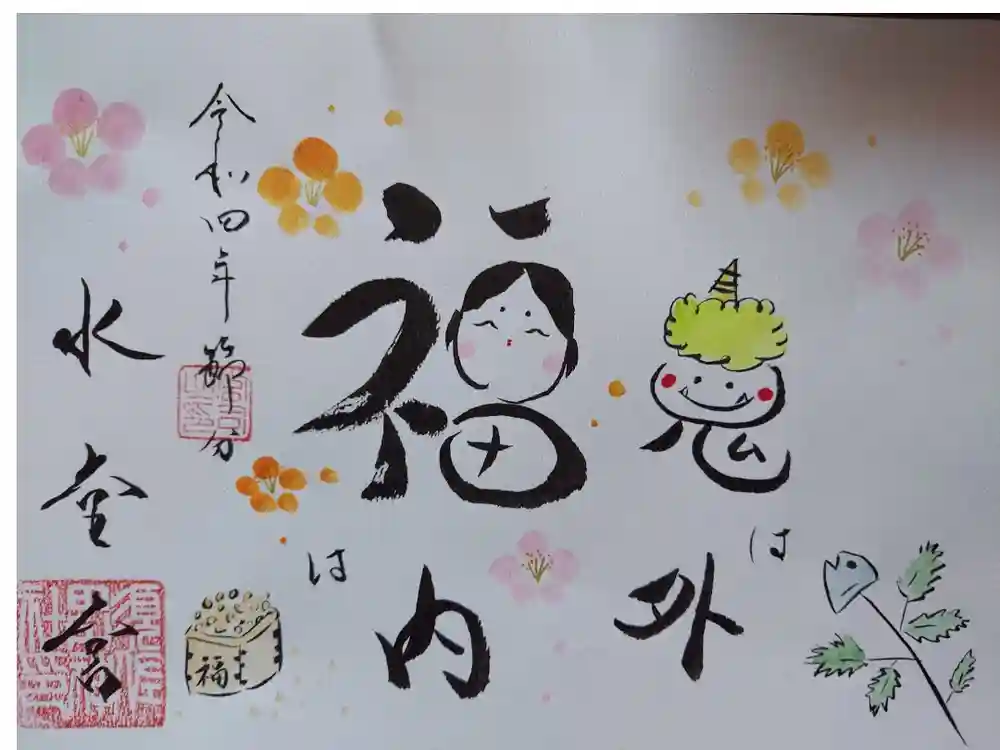 鬼は外
福は内
福
令和四年節分
水堂宮